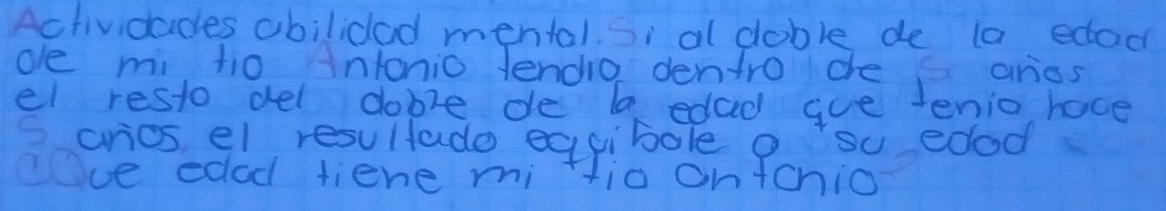 Actividades abilidad mental. Si al doble de la edad
de mi tio Antonio tendia dentro de 5 anos
el resto del doble de la edad que tenia hace
5 anos. el resultado eqqibale a su edad
¿Que edad tiene mi tio antonio?